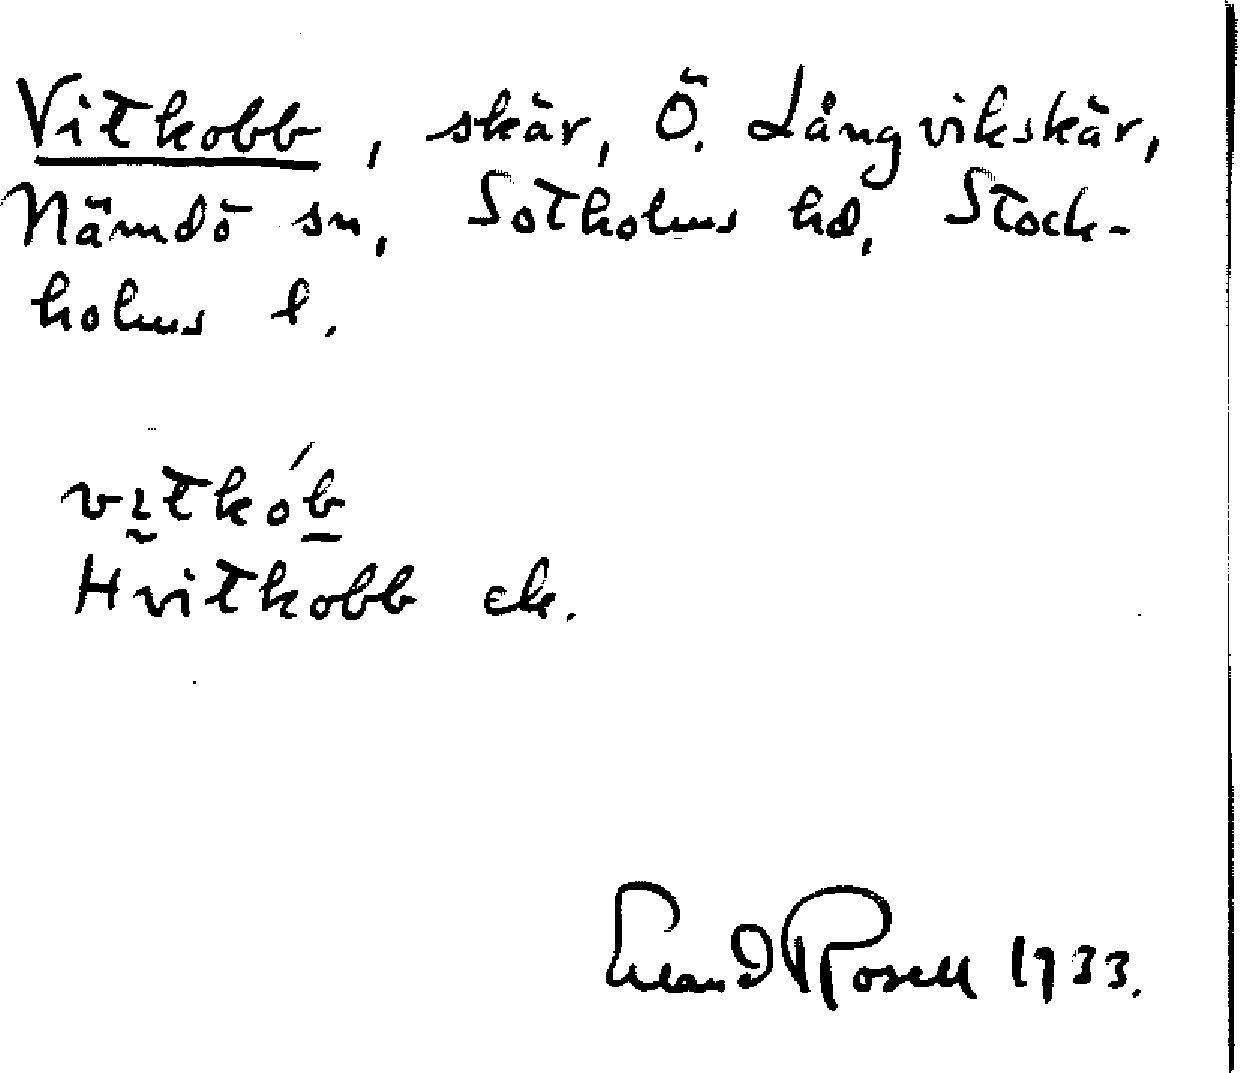 Vitkobb, skär, Ö. Långvikskär,
Nämdö sn, Sotholms hd, Stock-
holms l.
vıtkób
Hvitkobb ek.
Erland Rosell 1933.